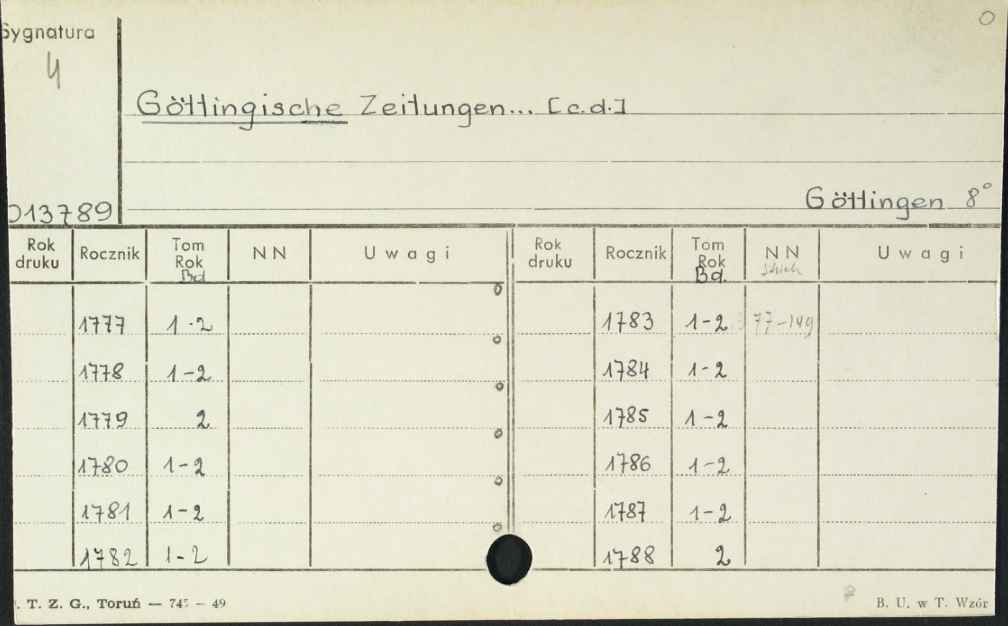 Sygnatura
4
Göttingische Zeitungen... [c.d.]
013789
Göttingen 8°
Rok druku Rocznik Tom Rok Bd NN Uwagi Rok druku Rocznik Tom Rok Bd. NN Uwagi
1777 1-2 1783 1-2 77-149
1778 1-2 1784 1-2
1779 2 1785 1-2
1780 1-2 1786 1-2
1781 1-2 1787 1-2
1782 1-2 1788 2
T. Z. G., Toruń — 745 — 49
B. U. w T. Wzór